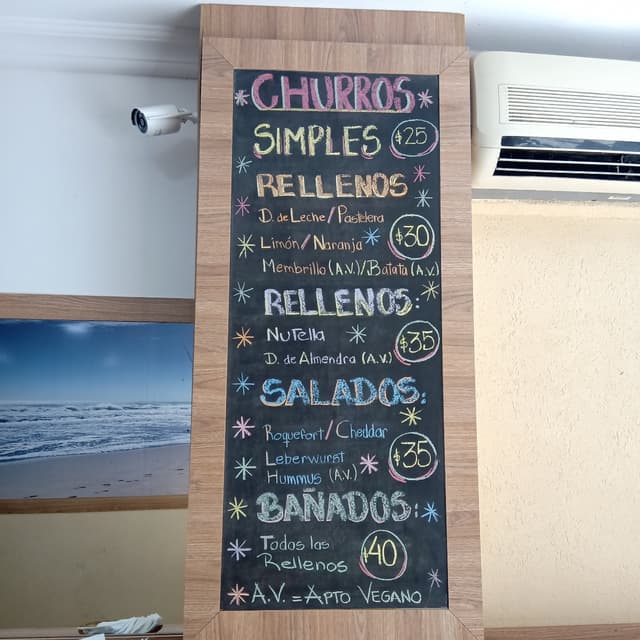 CHURROS
SIMPLES $25
RELLENOS
D. de Leche/Pastelera
Limón/Naranja $30
Membrillo (A.V.)/Batata (A.V)
RELLENOS:
Nutella
D. de Almendra (A.V.) $35
SALADOS:
Roquefort/Cheddar
Leberwurst $35
Hummus (A.V.)
BAÑADOS:
Todos los
Rellenos $40
A.V. = APTO VEGANO